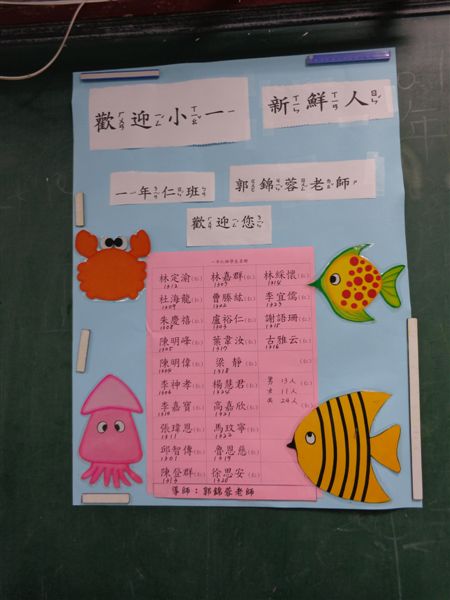 歡迎小一 新鮮人
一年仁班 郭錦蓉老師
歡迎您
林定渝 林嘉群 林綵懷
1312 1307 1314
杜海龍 曹勝紘 李宜儒
朱慶禧 盧裕仁 謝語珊
1308 1303 1315
陳明峰 葉韋汝 古雅云
1305 1317 1316
陳明偉 梁靜
1318
李神孝 楊慧君
1324 男 13人
李嘉寶 高嘉欣 女 11人
1321 共 24人
張瑋恩 馬玟寧
1311 1322
邱智傳 魯恩慈
1301 1319
陳登群 徐思安
1313 1320
導師：郭錦蓉老師